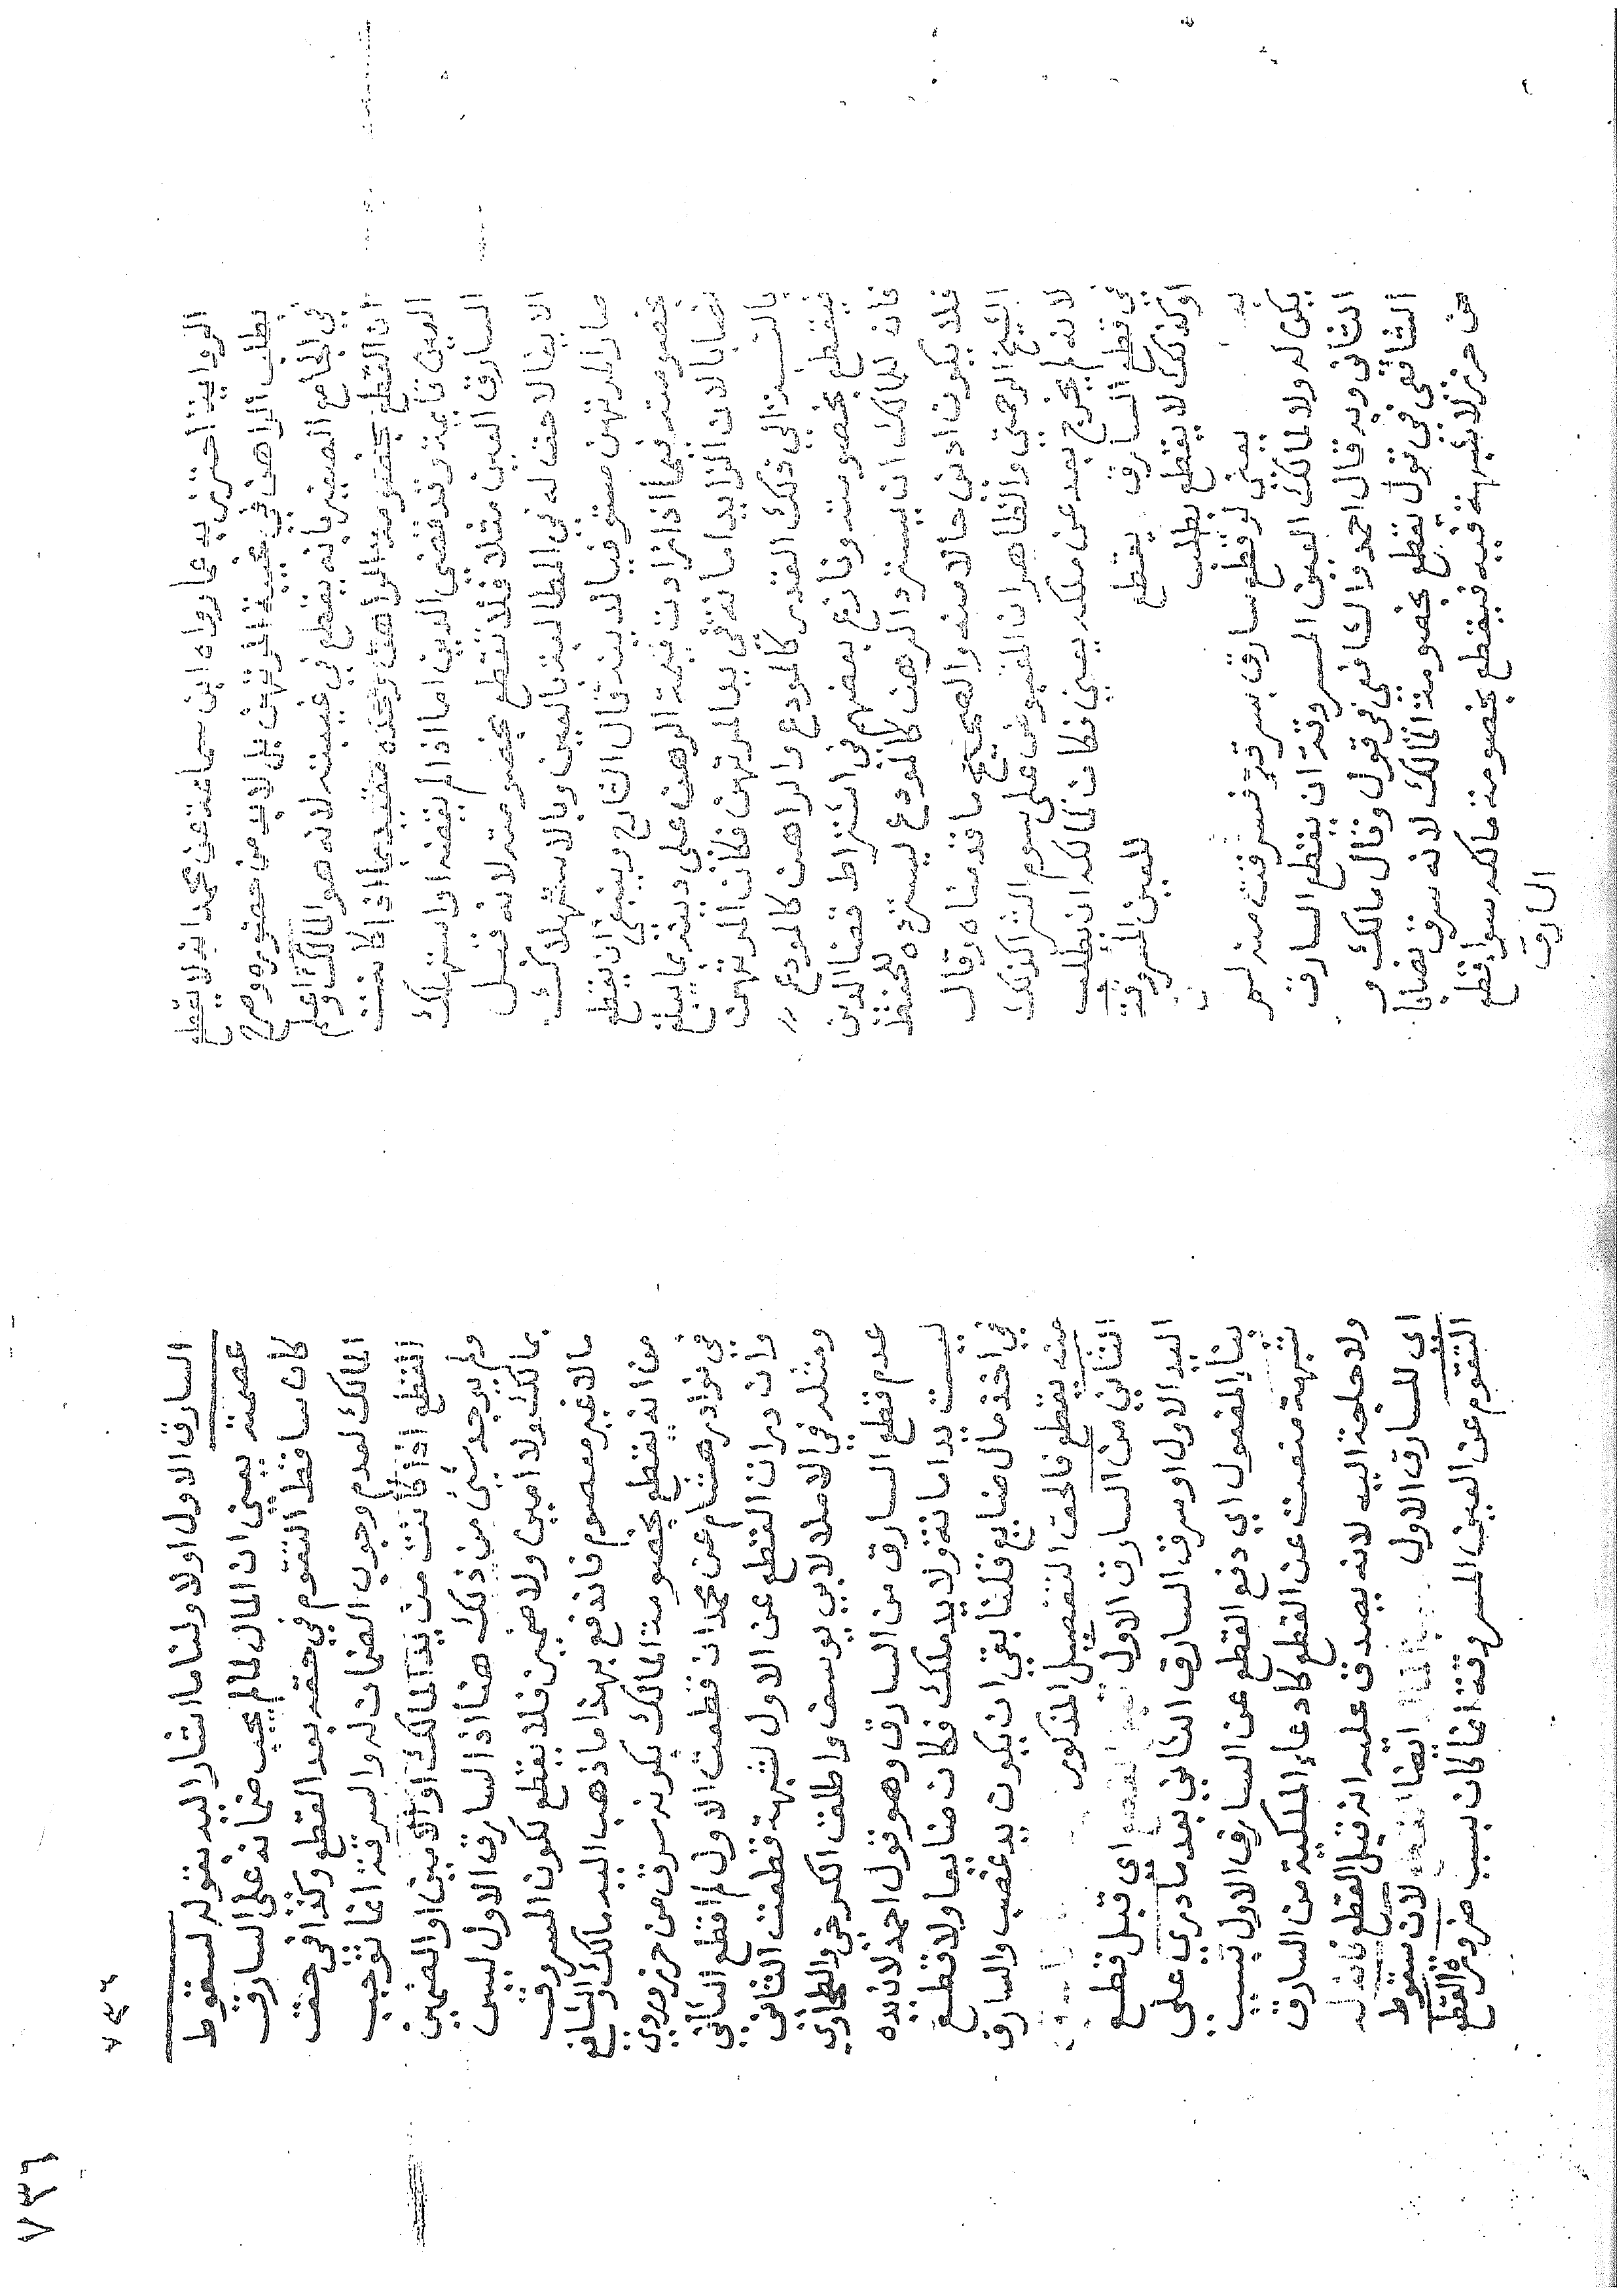 الرواية احترز به عما رواه ابن سماعة عن محمد انه لا يقطع
بطلب الراهن في غيبة المرتهن بل لا بد من حضوره وصرح
في الجامع الصغير بانه يقطع في غيبته لانه هو المالك واعلم
ان القطع بخصومة الراهن وحده مقيد بما اذا كانت
العين قايمة وقد قضى الدين اما اذا لم يقضه او استهلك
السارق العين مثلا فلا تقطع بخصومته لانه قبل
الايفا لا حق له في المطالبة بالعين وبالاستهلاك
صار المرتهن مستوفيا لدينه قال الشارح وينبغي ان يقطع
بخصومته فيما اذا زادت قيمة الرهن على دينه بما يبلغ
نصابا لان الزايد امانة في يد المرتهن فكان المرتهن
بالنسبة الي ذلك القدر كالمودع والراهن كالمودع
فيقطع بخصومته ونازع بعضهم في اشتراط قضا الدين
فان للمالك ان يسترد الرهن كالمودع يسترده للحفظ
فلا يكون ادنى حالا منه والصحيح ما قدمناه وقال
الشيخ والظاهر ان المقبوض على سوم الشرا كذلك
لانه لم يخرج بعد عن ملكه يعني فكان لمالكه ان يطلب
في قطع السارق يقطع للعين المسروقة
او كذلك لا يقطع بطلب
يعني لو قطع سارق بسرقة فسرقت منه لم
يكن له ولا لمالك العين المسروقة ان يقطع السارق
الثاني وبه قال احمد والشافعي في قول وقال مالك و
الشافعي في قول يقطع بخصومة المالك لانه سرق نصابا
من حرز لا شبهة فيه فيقطع بخصومة مالكه سوا قطع
السارق
٧٣٦
السارق الاول اولا ولنا ما اشار اليه بقوله لسقوط
عصمته يعني ان المال لما لم يجب ضمانه على السارق
كان ساقط التقوم في حقه بعد القطع وكذا في حق
المالك لعدم وجوب الضمان له والسرقة انما توجب
القطع اذا كانت من يد المالك او الامين او الضمين
ولم يوجد شي من ذلك هنا اذ السارق الاول ليس
بمالك ولا امين ولا ضمين فلا يقطع لكون المسروق
مالا غير معصوم فاندفع بهذا ما ذهب اليه مالك والشافعي
من انه يقطع بخصومة المالك بكونه سرق من حرز وروي
في نوادر هشام عن محمد ان قطعت الاول لم اقطع الثاني
وان درات القطع عن الاول لشبهة قطعت الثاني
ومثله في الاملا لابي يوسف واطلق الكرخي والطحاوي
عدم قطع السارق من السارق وهو قول احمد لان يده
ليست يد امانة ولا يد ملك فكان ضايعا ولا قطع
في اخذ مال ضايع قلنا بقي ان يكون يد غصب والسارق
منه يقطع فالحق التفصيل المذكور
الثاني من السارق الاول اي قبل قطع
اليد الاول او سرق السارق الثاني بعد ما دري على
بنا المفعول اي دفع القطع عن السارق الاول بسبب
شبهة منعت عن القطع كادعا الملكية من السارق
ولا حاجة اليه لانه يصدق عليه انه قبل القطع فان له
اى للسارق الاول القطع لان سقوط
التقوم عن العين المسروقة انما كان بسبب ضرورة القطع